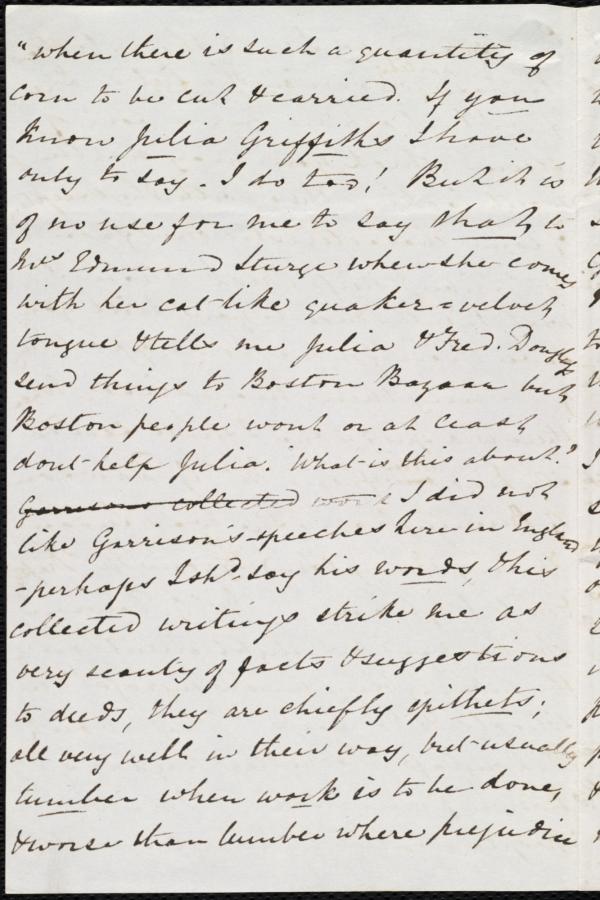 "when there is such a quantity of
corn to be cut & carried. If you
know Julia Griffiths I have
only to say - I do too! But it is
of no use for me to say that, to
Mrs Edmund Sturge when she comes
with her cat-like quaker=velvet
tongue & tells me Julia & Fred. Douglass
send things to Boston Bazaar but
Boston people wont or at least
dont help Julia. What is this about?
Garrisons collected word I did not
like Garrison's speeches here in England
-perhaps I shd say his words, this
collected writings strike me as
very scanty of facts & suggestions
to deeds, they are chiefly epithets;
all very well in their way, but usually
lumber when work is to be done,
& worse than lumber where prejudice